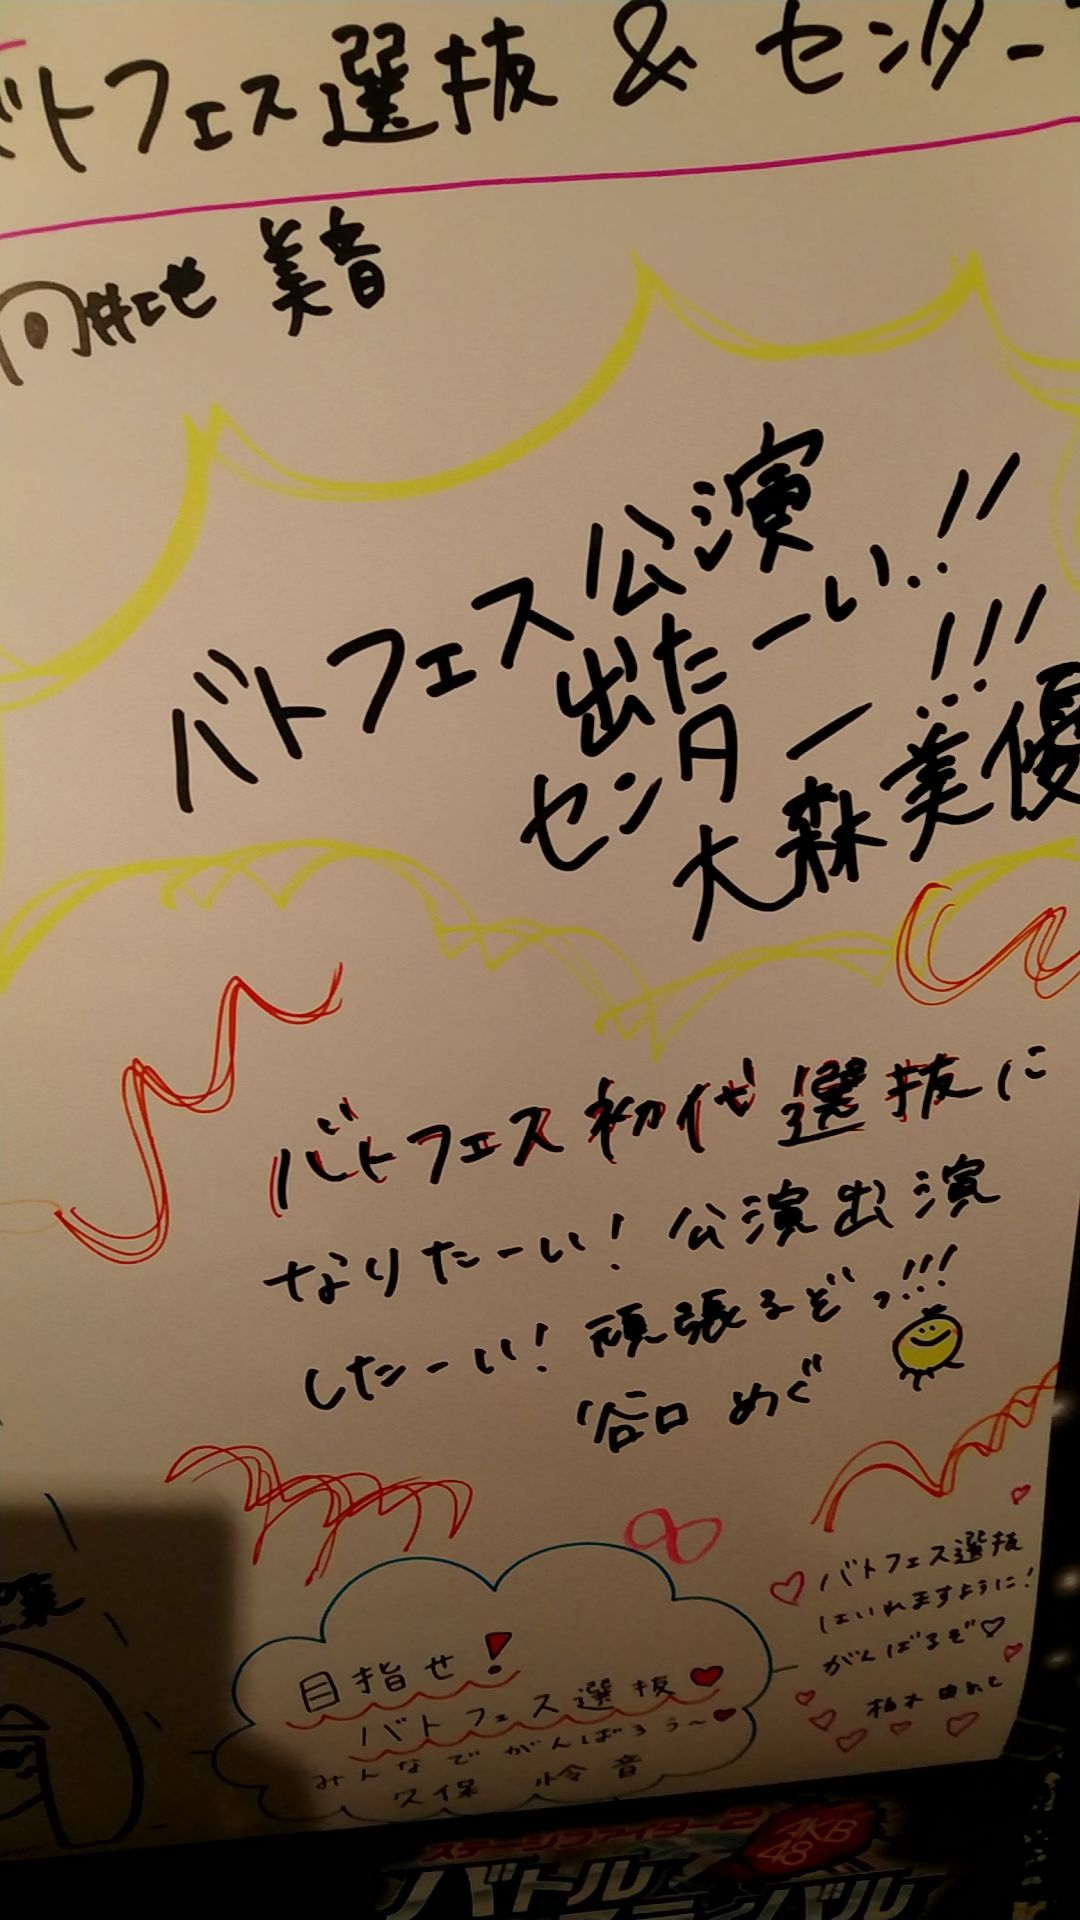 バトフェス選抜 & センター
向井地 美音
バトフェス公演
出たーい!!
センター!!!
大森美優
バトフェス初代選抜に
なりたーい! 公演出演
したーい! 頑張るぞっ!!!
谷口 めぐ
目指せ!
バトフェス選抜
みんなでがんばろう〜
久保 怜音
バトフェス選抜
はいれますように!
がんばるぞ♡
柏木由紀
ステージファイター2
AKB
48
バトルフェスティバル